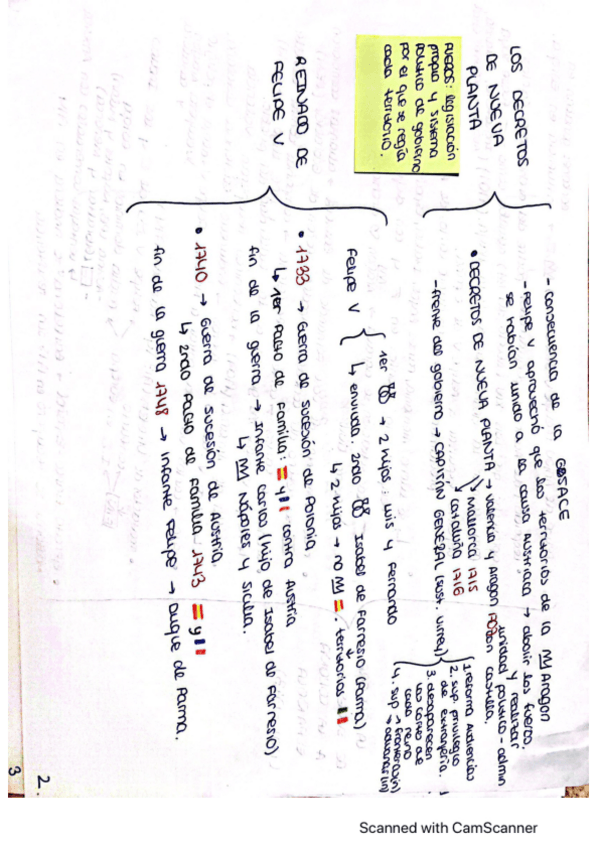 LOS DECRETOS
DE NUEVA
PLANTA
- Consecuencia de la GDSACE
- Felipe V aprovechó que los territorios de la M Aragon
se habían unido a la causa Austriaca → abolir los fueros,
y realizar
unidad política - admin
• DECRETOS DE NUEVA PLANTA → Valencia y Aragon 1707 con Castilla.
Mallorca 1715
Cataluña 1716
- frente del gobierno → CAPITÁN GENERAL (sust. virrey)
1. reforma Audiencias
2. sup. privilegio
de extranjería.
3. desaparecen
las cortes de
cada reino
4. sup → fronteras (n)
→ aduanas (n)
FUEROS: legislación
propia y sistema
político de gobierno
por el que se regía
cada territorio.
REINADO DE
FELIPE V
Felipe V
1er → 2 hijos: Luis y Fernando
↳ enviuda. 2ndo Isabel de Farnesio (Parma)
↳ 2 hijos → no M . territorios
• 1733 → Guerra de sucesión de Polonia.
↳ 1er Pacto de Familia: y contra Austria
fin de la guerra → Infante Carlos (hijo de Isabel de Farnesio)
↳ M Nápoles y Sicilia.
• 1740 → Guerra de sucesión de Austria.
↳ 2ndo Pacto de Familia 1743 y
fin de la guerra 1748 → infante Felipe → duque de Parma.
2.
3
Scanned with CamScanner